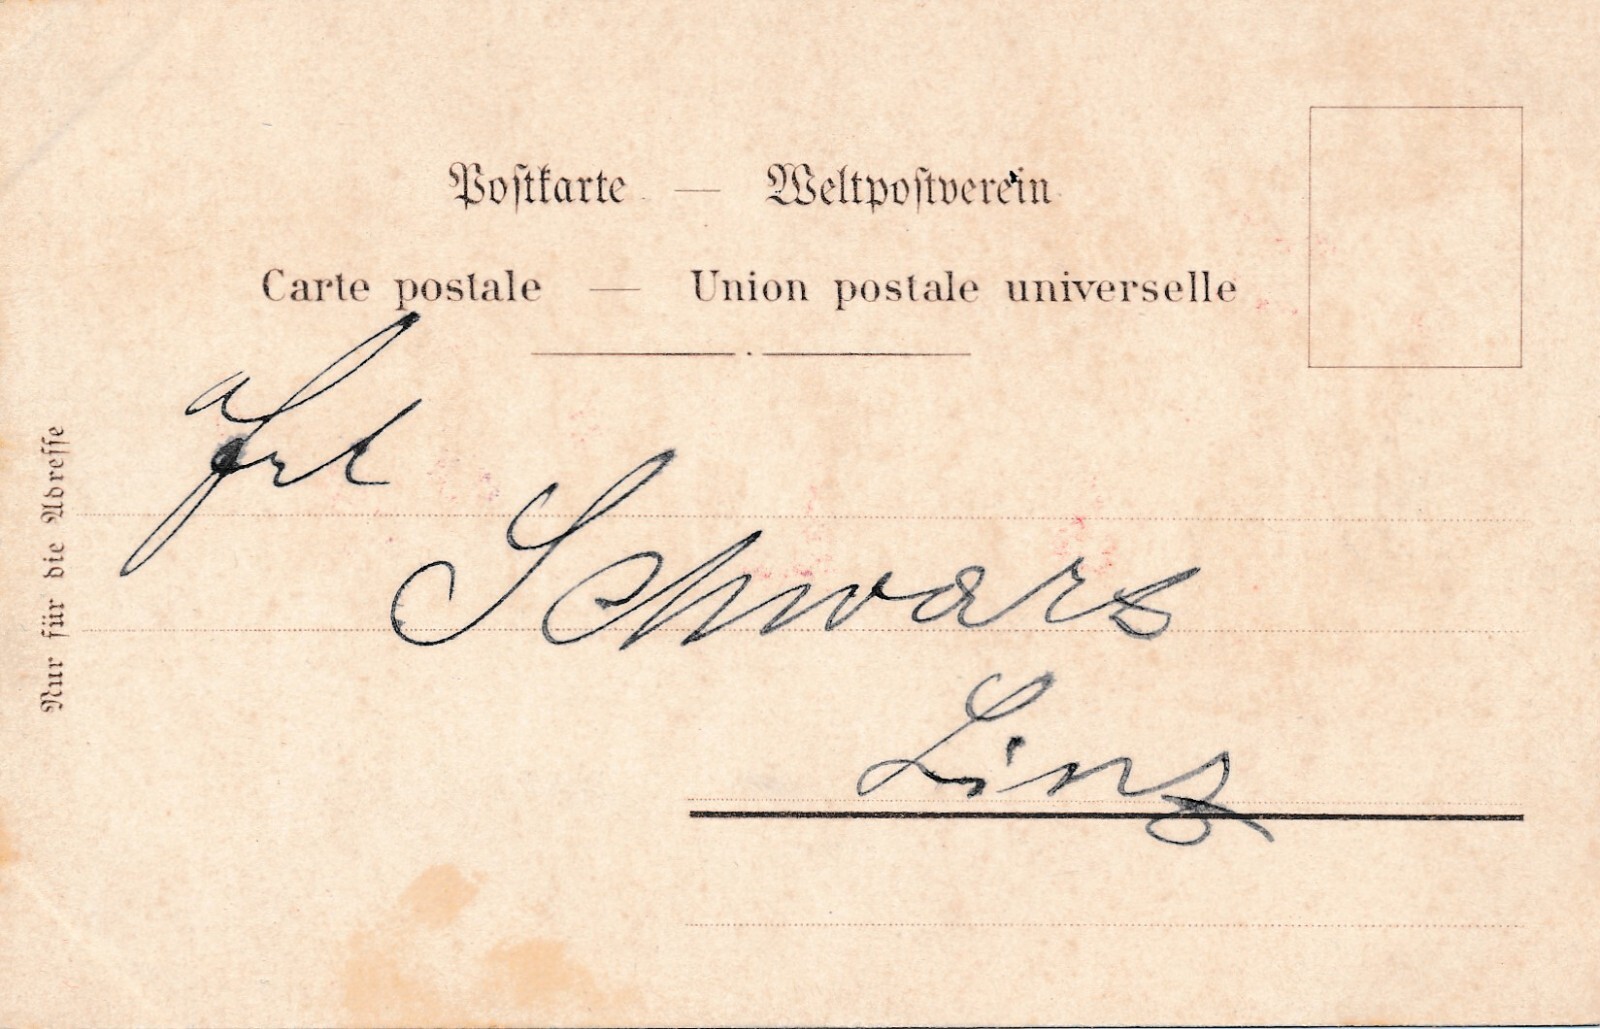 Postkarte — Weltpostverein
Carte postale — Union postale universelle
Nur für die Adresse
Frl
Schwarz
Linz